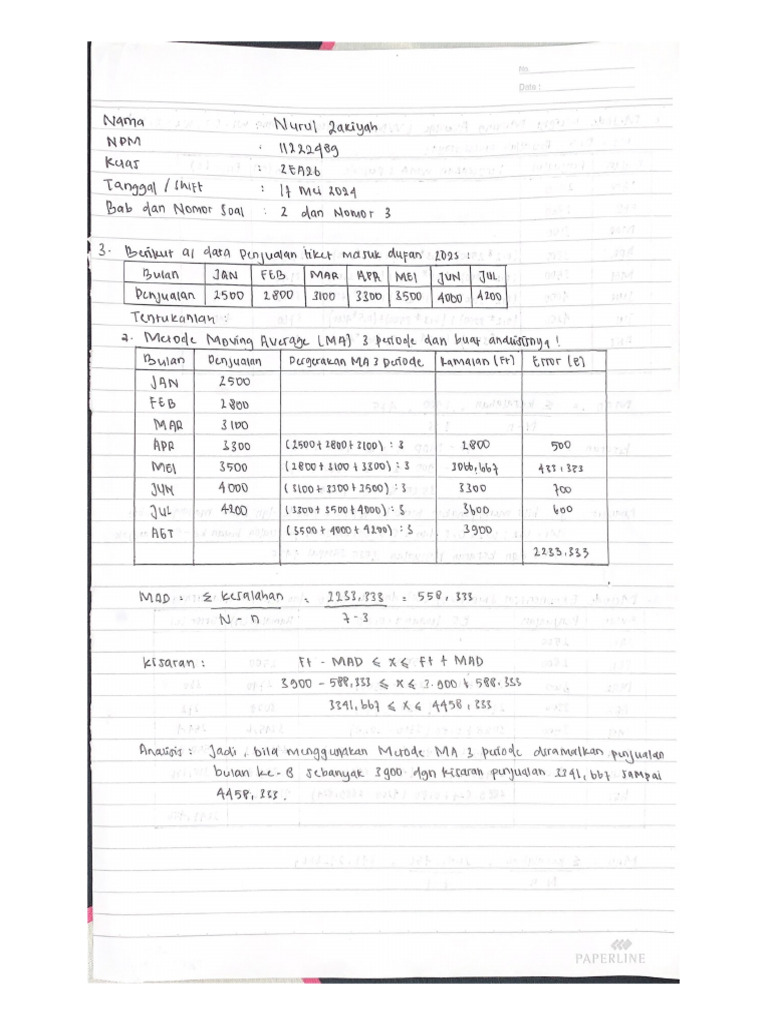 No
Date :
Nama : Nurul Zakiyah
NPM : 11222489
Kelas : 2EA26
Tanggal / Shift : 17 Mei 2024
Bab dan Nomor Soal : 2 dan Nomor 3
3. Berikut ai data penjualan tiket masuk dufan 2023 :
Bulan JAN FEB MAR APR MEI JUN JUL
Penjualan 2500 2800 3100 3300 3500 4000 4200
Tentukanlah :
a. Metode Moving Average (MA) 3 periode dan buat analisisnya !
Bulan Penjualan Pergerakan MA 3 Periode Ramalan (Ft) Error (e)
JAN 2500
FEB 2800
MAR 3100
APR 3300 (2500 + 2800 + 3100) : 3 2800 500
MEI 3500 (2800 + 3100 + 3300) : 3 3066,667 433,333
JUN 4000 (3100 + 3300 + 3500) : 3 3300 700
JUL 4200 (3300 + 3500 + 4000) : 3 3600 600
AGT (3500 + 4000 + 4200) : 3 3900
2233,333
MAD : Σ kesalahan = 2233,333 = 558,333
N - n 7 - 3
Kisaran : Ft - MAD ≤ x ≤ Ft + MAD
3900 - 588,333 ≤ x ≤ 3.900 + 588.333
3341,667 ≤ x ≤ 4458,333
Analisis : Jadi, bila menggunakan Metode MA 3 periode diramalkan penjualan
bulan ke-8 sebanyak 3900 dgn kisaran penjualan 3341,667 sampai
4458,333.
PAPERLINE